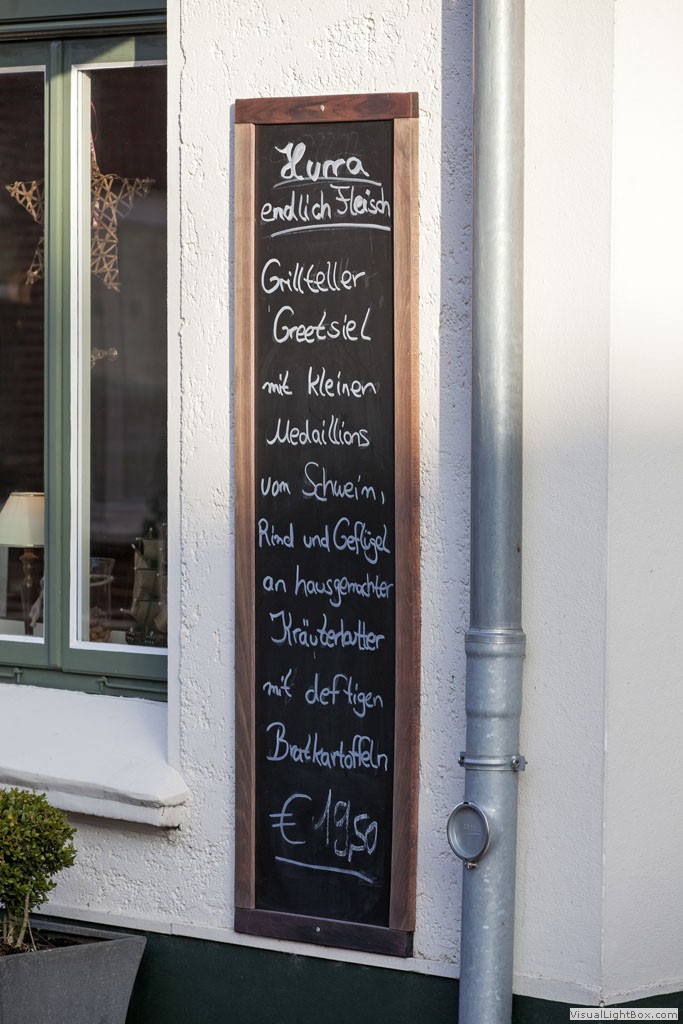 Hurra
endlich Fleisch
Grillteller
Greetsiel
mit kleinen
Medaillions
vom Schwein,
Rind und Geflügel
an hausgemachter
Kräuterbutter
mit deftigen
Bratkartoffeln
€ 19,50
VisualLightBox.com